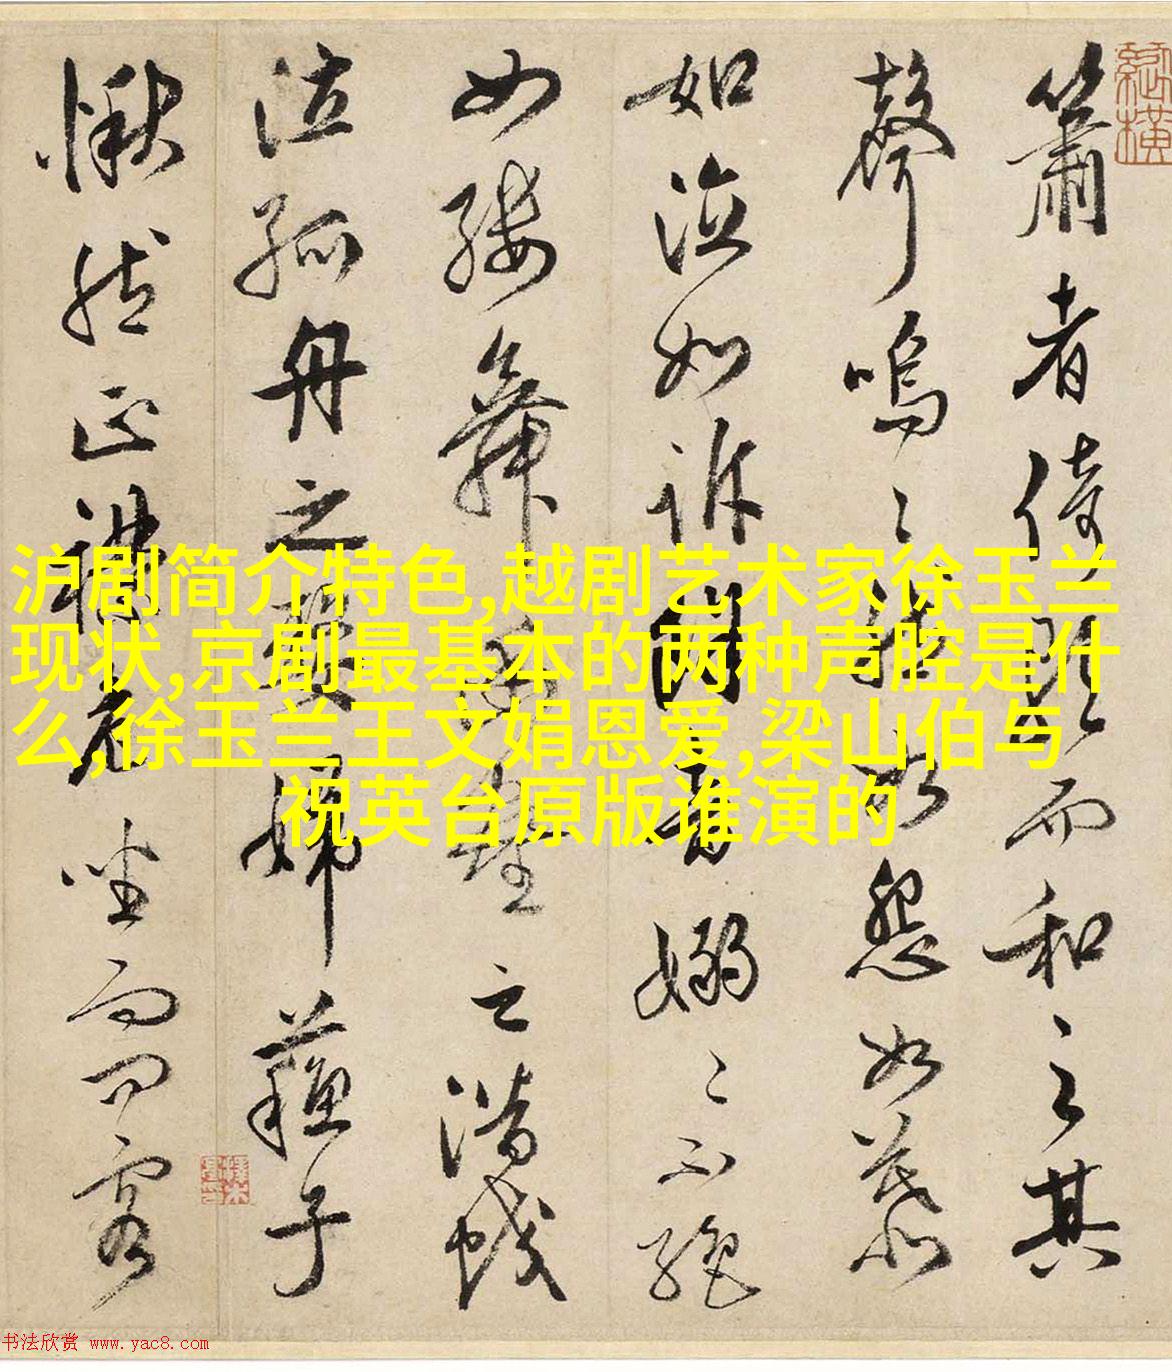 簫者倚歌而和之其
聲嗚〻然如怨如慕
如泣如訴餘音嫋〻不絕
如縷舞幽壑之潛蛟
泣孤舟之嫠婦蘇子
愀然正襟危坐而問客
沪剧简介特色,越剧艺术家徐玉兰
现状,京剧最基本的两种声腔是什
么,徐玉兰王文娟恩爱,梁山伯与
祝英台原版谁演的
书法欣赏 www.yac8.com